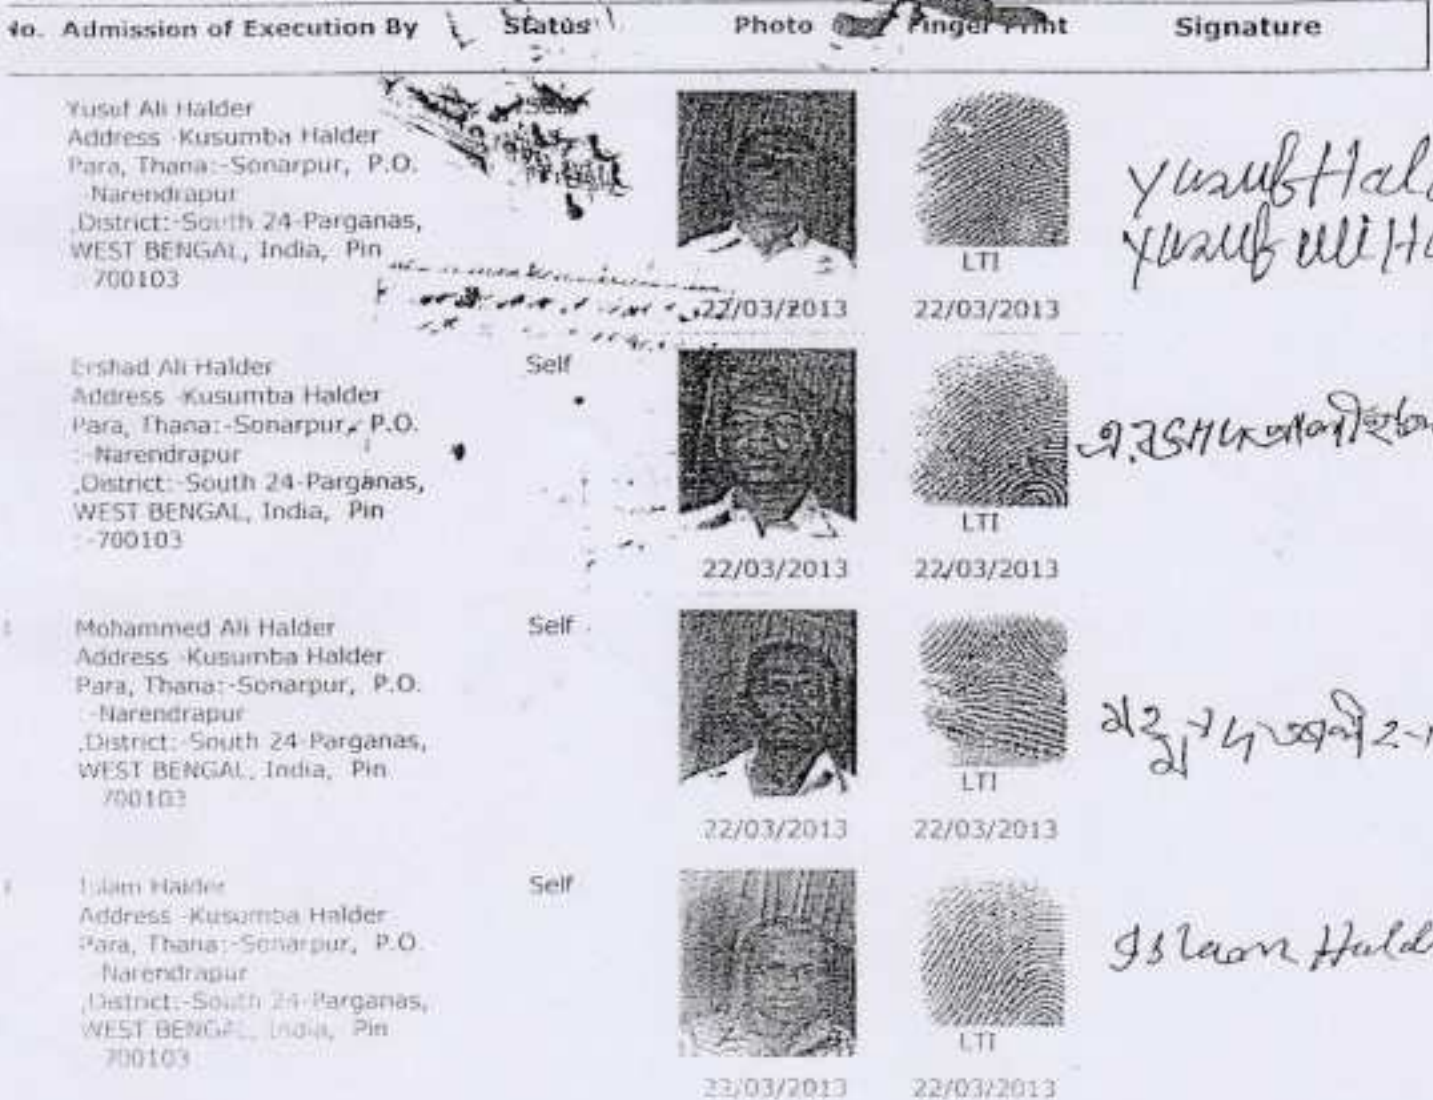 No. Admission of Execution By Status Photo Finger Print Signature
Yusuf Ali Halder Self
Address -Kusumba Halder
Para, Thana:-Sonarpur, P.O.
:-Narendrapur
,District:-South 24-Parganas,
WEST BENGAL, India, Pin
:-700103
LTI
22/03/2013 22/03/2013
Yusuf Hal
Yusuf Ali Ha
Ershad Ali Halder Self
Address -Kusumba Halder
Para, Thana:-Sonarpur, P.O.
:-Narendrapur
,District:-South 24-Parganas,
WEST BENGAL, India, Pin
:-700103
LTI
22/03/2013 22/03/2013
Mohammed Ali Halder Self
Address -Kusumba Halder
Para, Thana:-Sonarpur, P.O.
:-Narendrapur
,District:-South 24-Parganas,
WEST BENGAL, India, Pin
700103
LTI
22/03/2013 22/03/2013
Islam Halder Self
Address -Kusumba Halder
Para, Thana:-Sonarpur, P.O.
Narendrapur
,District:-South 24-Parganas,
WEST BENGAL, India, Pin
700103
LTI
23/03/2013 22/03/2013
Islam Hald